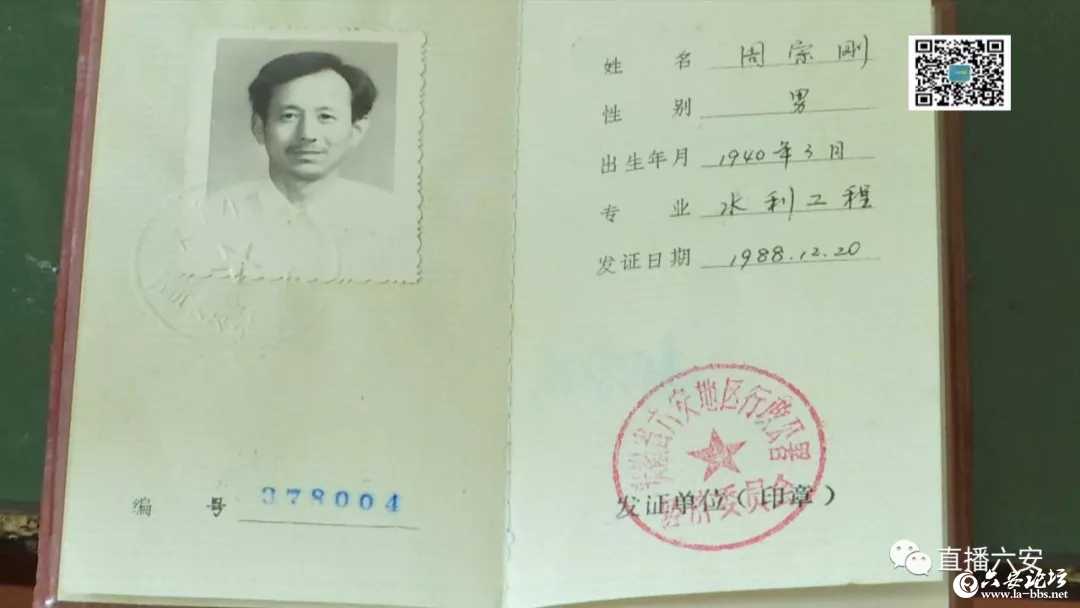 编 号 378004
姓 名 周宗刚
性 别 男
出生年月 1940年3月
专 业 水利工程
发证日期 1988.12.20
安徽省六安地区行政公署
经济委员会
发证单位(印章)
直播六安
六安论坛
www.la-bbs.net